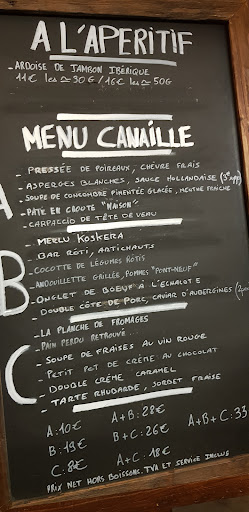 A L'APERITIF
- ARDOISE DE JAMBON IBÉRIQUE
11€ les ≃ 30G / 16€ les ≃ 50G
MENU CANAILLE
A
- PRESSÉE DE POIREAUX, CHÈVRE FRAIS
- ASPERGES BLANCHES, SAUCE HOLLANDAISE (3€
- SOUPE DE CONCOMBRE PIMENTÉE GLACÉE, MENTHE FRAICHE
- PÂTE EN CROUTE "MAISON"
- CARPACCIO DE TÊTE DE VEAU
B
- MERLU KOSKERA
- BAR RÔTI, ARTICHAUTS
- COCOTTE DE LÉGUMES RÔTIS
- ANDOUILLETTE GRILLÉE, POMMES "PONT-NEUF"
- ONGLET DE BOEUF À L'ECHALOTE
- DOUBLE CÔTE DE PORC, CAVIAR D'AUBERGINES
C
- LA PLANCHE DE FROMAGES
- PAIN PERDU RETROUVÉ
- SOUPE DE FRAISES AU VIN ROUGE
- PETIT POT DE CRÈME AU CHOCOLAT
- DOUBLE CRÈME CARAMEL
- TARTE RHUBARBE, SORBET FRAISE
A: 10€ A+B: 28€ A+B+C: 33
B: 19€ B+C: 26€
C: 8€ A+C: 18€
PRIX NET HORS BOISSONS. TVA ET SERVICE INCLUS